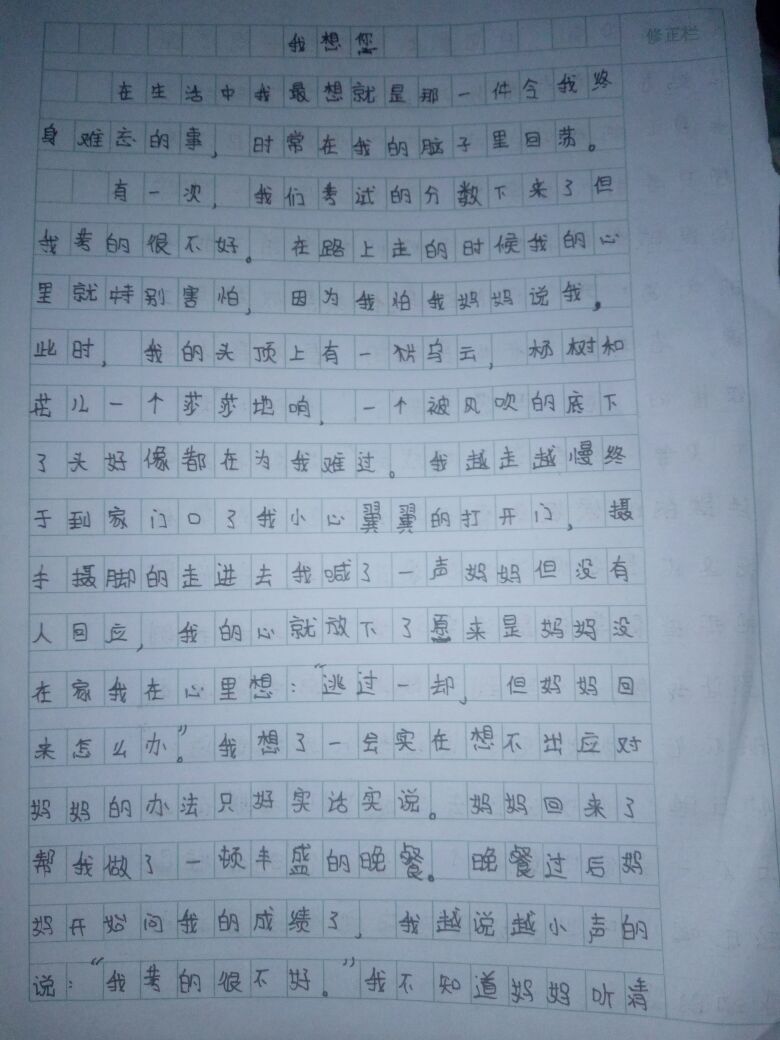 修正栏
我想您
在生活中我最想就是那一件令我终
身难忘的事，时常在我的脑子里回荡。
有一次，我们考试的分数下来了但
我考的很不好。在路上走的时候我的心
里就特别害怕，因为我怕我妈妈说我。
此时，我的头顶上有一片乌云，杨树和
花儿一个莎莎地响，一个被风吹的底下
了头好像都在为我难过。我越走越慢终
于到家门口了我小心翼翼的打开门，摄
手摄脚的走进去我喊了一声妈妈但没有
人回应，我的心就放下了原来是妈妈没
在家我在心里想：“逃过一却，但妈妈回
来怎么办。”我想了一会实在想不出应对
妈妈的办法只好实话实说。妈妈回来了
帮我做了一顿丰盛的晚餐。晚餐过后妈
妈开始问我的成绩了，我越说越小声的
说：“我考的很不好。”我不知道妈妈听清